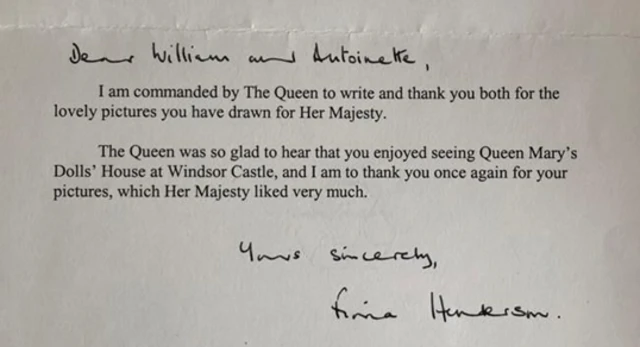 Dear William and Antoinette,
I am commanded by The Queen to write and thank you both for the
lovely pictures you have drawn for Her Majesty.
The Queen was so glad to hear that you enjoyed seeing Queen Mary's
Dolls' House at Windsor Castle, and I am to thank you once again for your
pictures, which Her Majesty liked very much.
Yours sincerely,
Henderson.